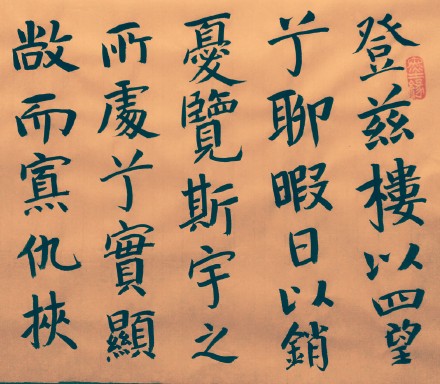 登茲樓以四望
兮聊暇日以銷
憂覽斯宇之
所處兮實顯
敞而寡仇挾